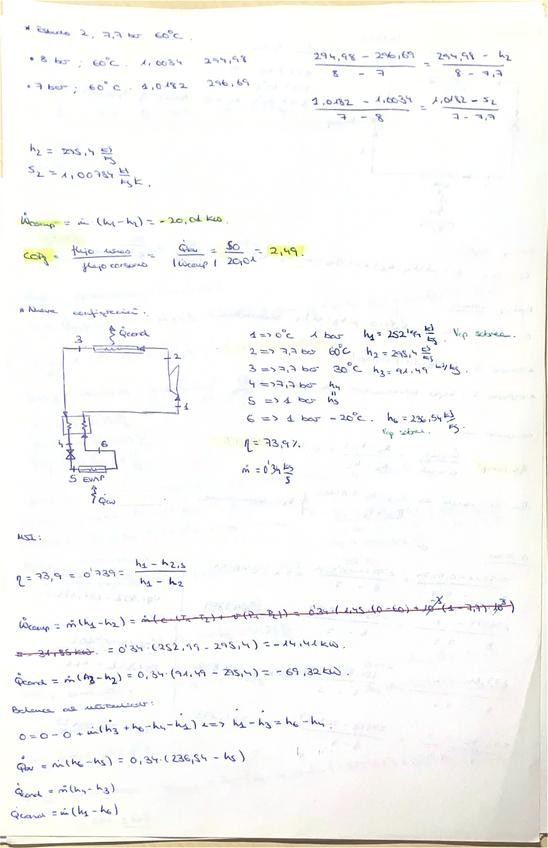 * Estado 2, 7,7 bar 60°C.
• 8 bar ; 60°C. 1,0034 294,98
• 7 bar ; 60°C. 1,0182 296,69
(294,98 - 296,69)/(8 - 7) = (294,98 - h2)/(8 - 7,7)
(1,0182 - 1,0034)/(7 - 8) = (1,0182 - s2)/(7 - 7,7)
h2 = 295,4 kJ/kg
S2 = 1,00784 kJ/kg K.
Ẇcomp = ṁ (h1-h2) = -20,01 kW.
= Q̇ev/|Ẇcomp| = 50/20,01 = 2,49.
* Nueva configuración.
Q̇cond
3
2
1
4
6
5 EVAP
Q̇ev
1 => 0°C 1 bar h1 = 252'99 kJ/kg Vap sobrec.
2 => 7,7 bar 60°C h2 = 295,4 kJ/kg
3 => 7,7 bar 30°C h3 = 91.49 kJ/kg.
4 => 7,7 bar h4
5 => 1 bar h5
6 => 1 bar -20°C. h6 = 236,54 kJ/kg.
Vap sobrec.
η = 73,9%
ṁ = 0'34 kg/s
η = 73,9 = 0'739 = (h1 - h2,s)/(h1 - h2)
Ẇcomp = ṁ(h1-h2) =
= 0'34·(252,99 - 295,4) = -14,41 kW.
Q̇cond = ṁ(h3-h2) = 0,34·(91,49 - 295,4) = -69,32 kW.
0 = 0 - 0 + ṁ(h3 + h6 - h4 - h1) => h1 - h3 = h6 - h4.
Q̇ev = ṁ(h6-h5) = 0,34·(236,54 - h5)
Q̇cond = ṁ(h4-h3)
Q̇cond = ṁ(h1-h6)